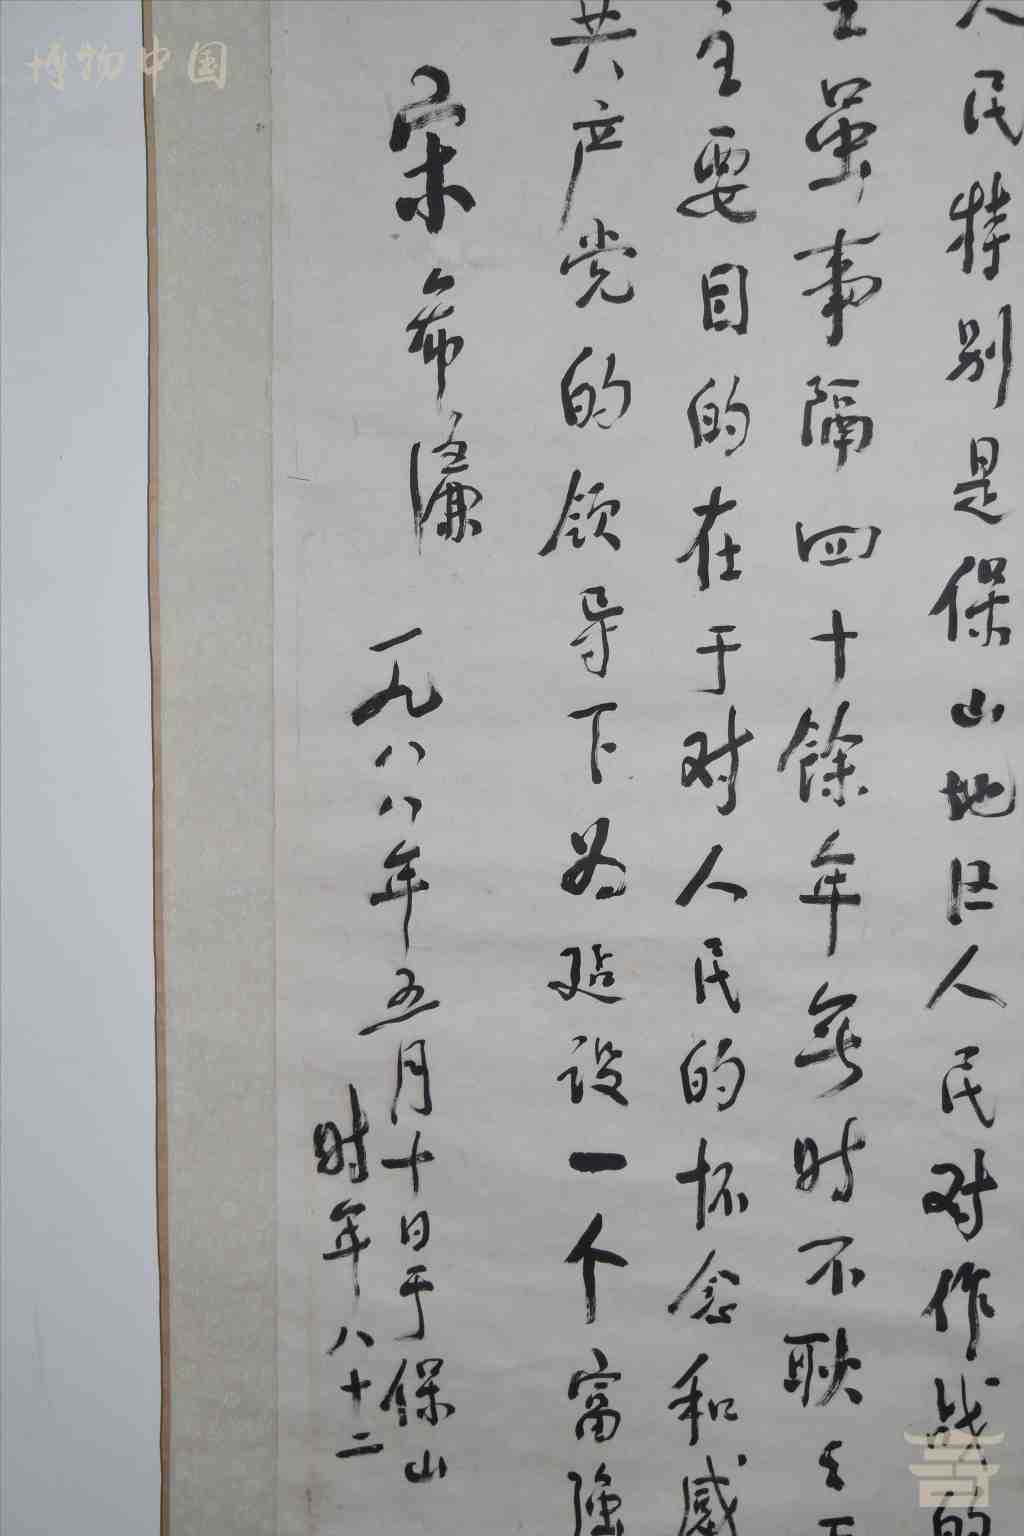 人民特别是保山地区人民对作战的
虽事隔四十馀年无时不耿
主要目的在于对人民的怀念和感
共产党的领导下为建设一个富强
宋希濂 一九八八年五月十日于保山
时年八十二
博物中国